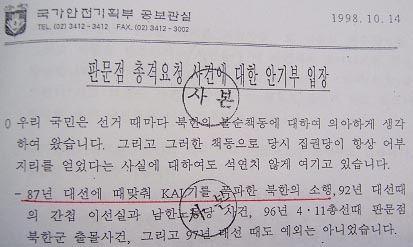 국가안전기획부 공보관실
1998. 10. 14
TEL. (02) 3412-3412 FAX. (02) 3412-3002
판문점 총격요청 사건에 대한 안기부 입장
사본
0 우리 국민은 선거 때마다 북한의 불순책동에 대하여 의아하게 생각
하여 왔습니다. 그리고 그러한 책동으로 당시 집권당이 항상 어부
지리를 얻었다는 사실에 대하여도 석연치 않게 여기고 있습니다.
- 87년 대선에 때맞춰 KAL기를 폭파한 북한의 소행, 92년 대선때
의 간첩 이선실과 남한 사건, 96년 4·11총선때 판문점
북한군 출몰사건, 그리고 97년 대선 때도 예외는 아니었습니다.